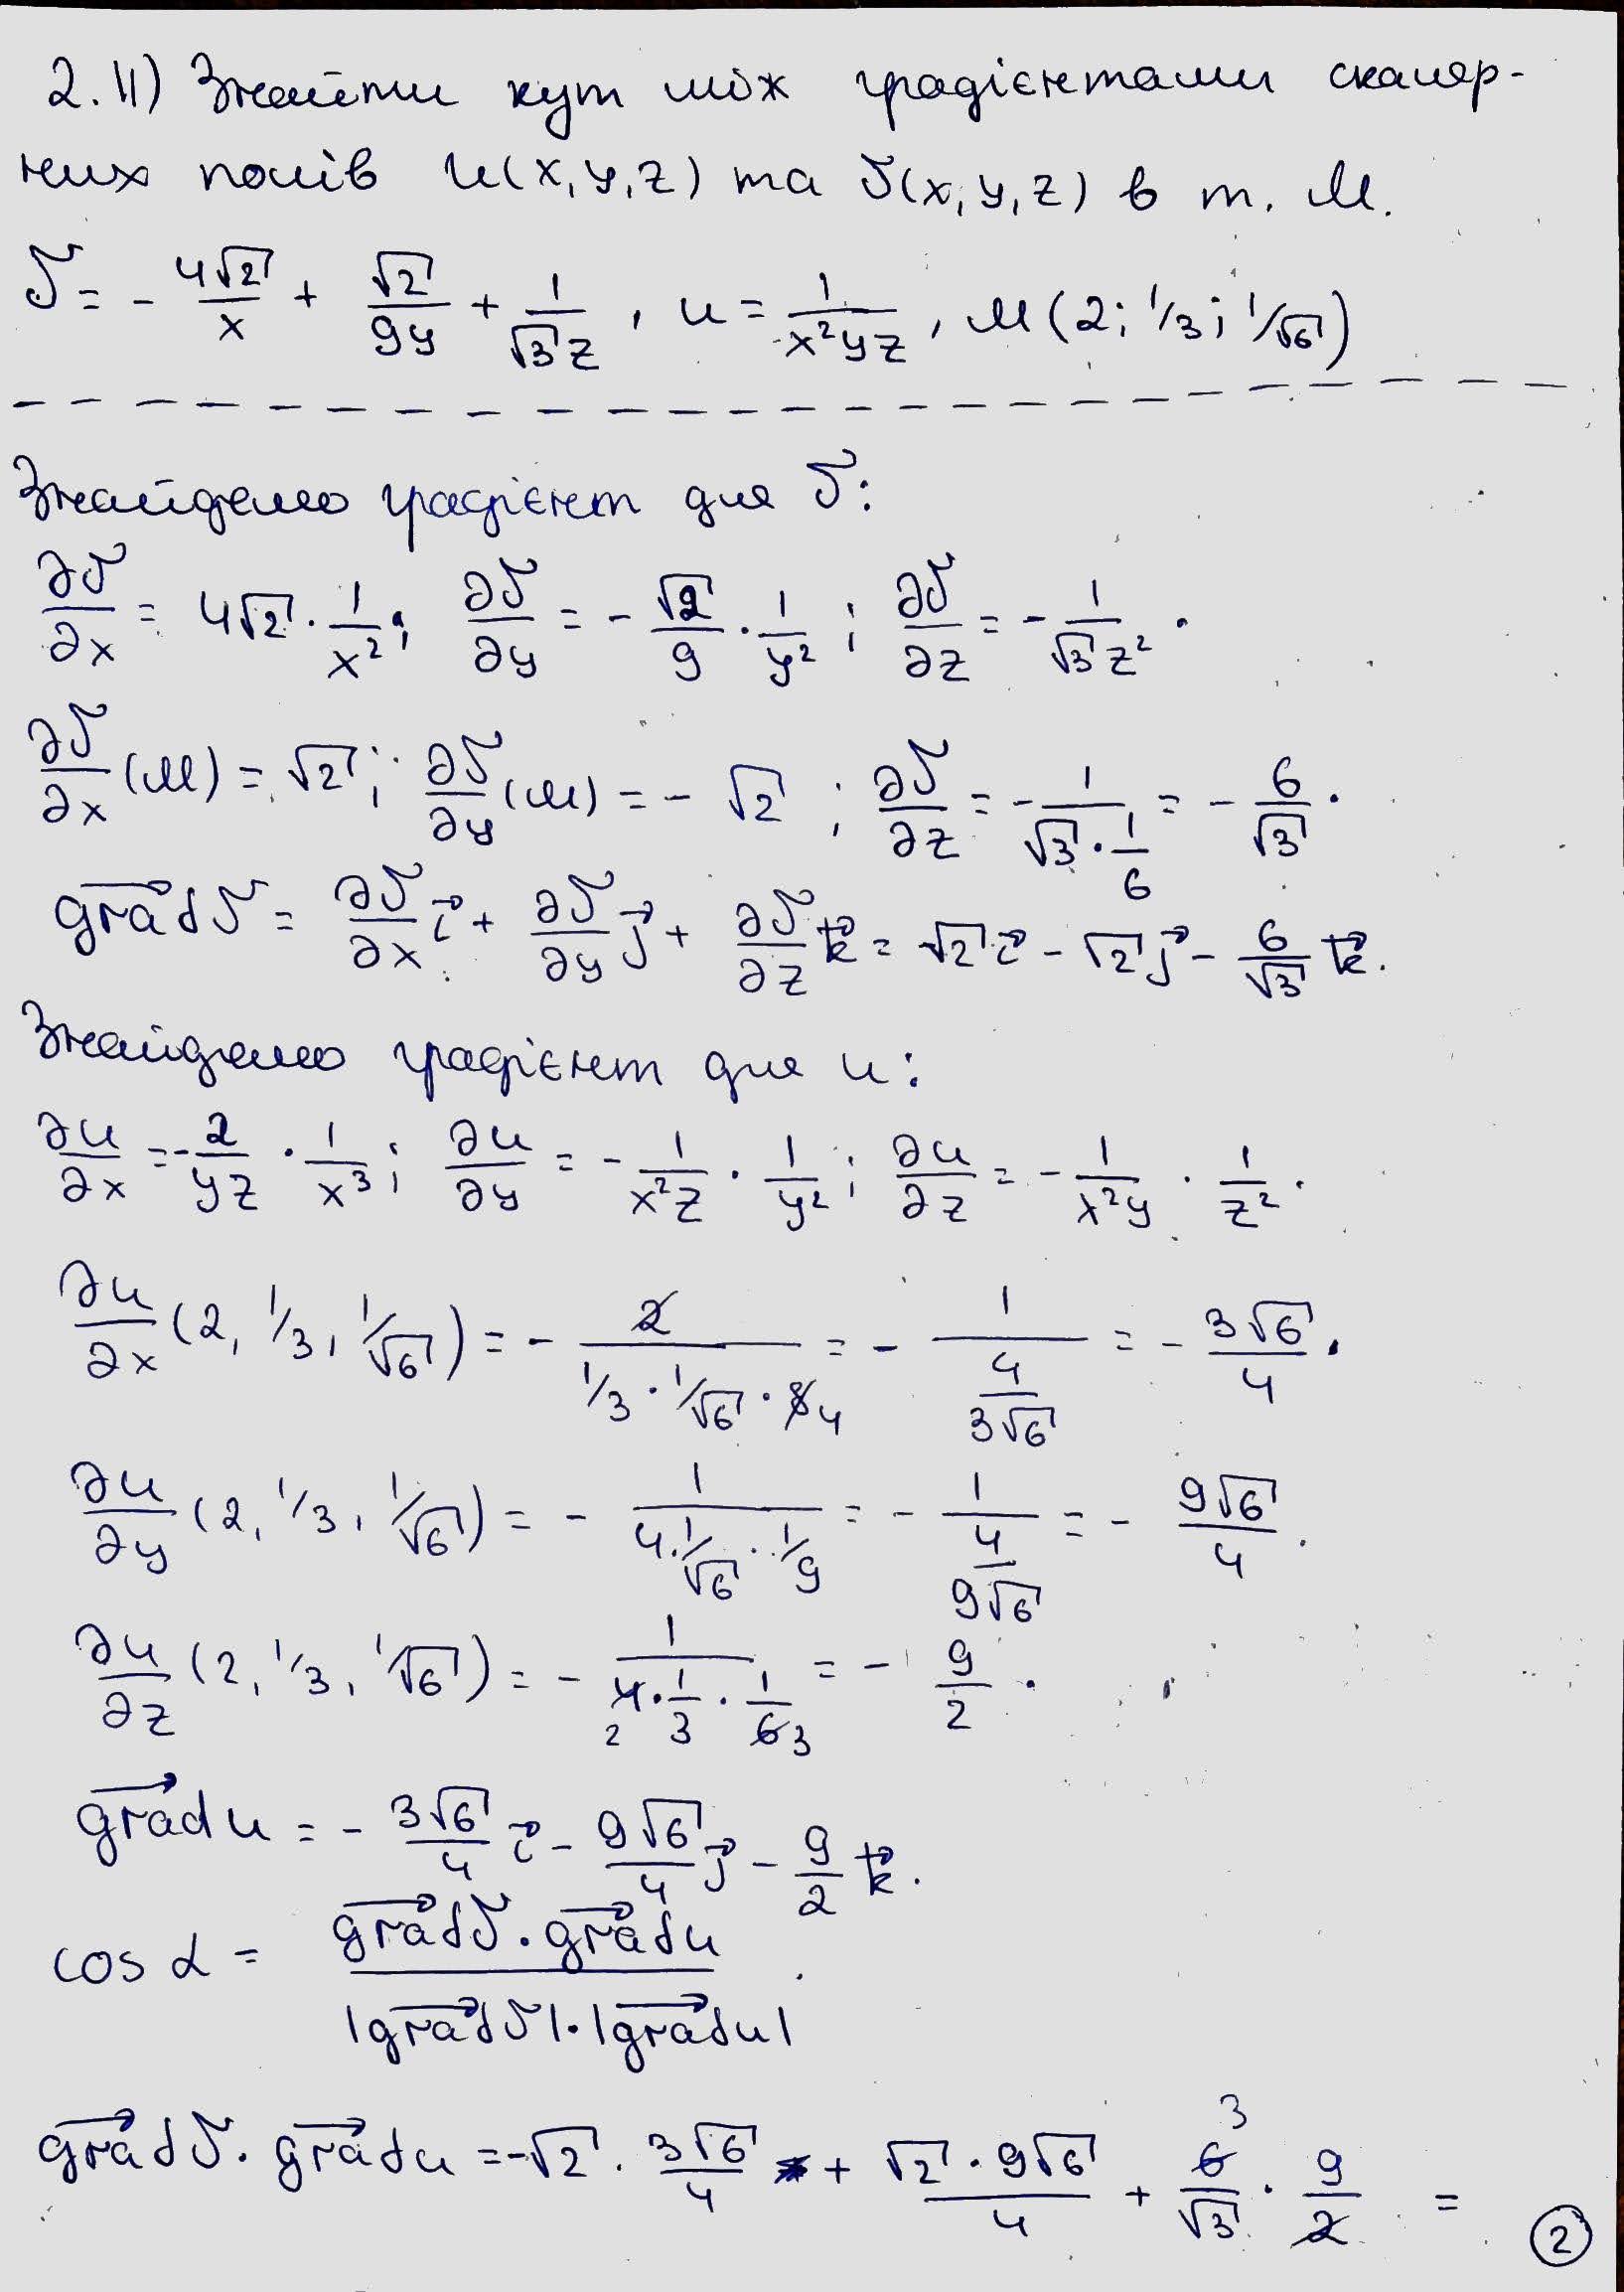 2.11) Знайти кут між градієнтами скаляр-
них полів u(x,y,z) та υ(x,y,z) в т. M.
υ = - 4√2/x + √2/9y + 1/√3z, u = 1/x²yz, M(2; 1/3; 1/√6)
Знайдемо градієнт для υ:
∂υ/∂x = 4√2 · 1/x²; ∂υ/∂y = - √2/9 · 1/y²; ∂υ/∂z = - 1/√3z².
∂υ/∂x (M) = √2; ∂υ/∂y (M) = - √2; ∂υ/∂z = - 1/(√3 · 1/6) = - 6/√3.
grad υ = ∂υ/∂x i + ∂υ/∂y j + ∂υ/∂z k = √2 i - √2 j - 6/√3 k.
Знайдемо градієнт для u:
∂u/∂x = - 2/yz · 1/x³; ∂u/∂y = - 1/x²z · 1/y²; ∂u/∂z = - 1/x²y · 1/z².
∂u/∂x (2, 1/3, 1/√6) = - 2/(1/3 · 1/√6 · 8 4) = - 1/(4/3√6) = - 3√6/4.
∂u/∂y (2, 1/3, 1/√6) = - 1/(4 · 1/√6 · 1/9) = - 1/(4/9√6) = - 9√6/4.
∂u/∂z (2, 1/3, 1/√6) = - 1/(4 2 · 1/3 · 1/6 3) = - 9/2.
grad u = - 3√6/4 i - 9√6/4 j - 9/2 k.
cos α = grad υ · grad u / |grad υ| · |grad u|.
grad υ · grad u = -√2 · 3√6/4 + √2 · 9√6/4 + 6 3/√3 · 9/2 =
2